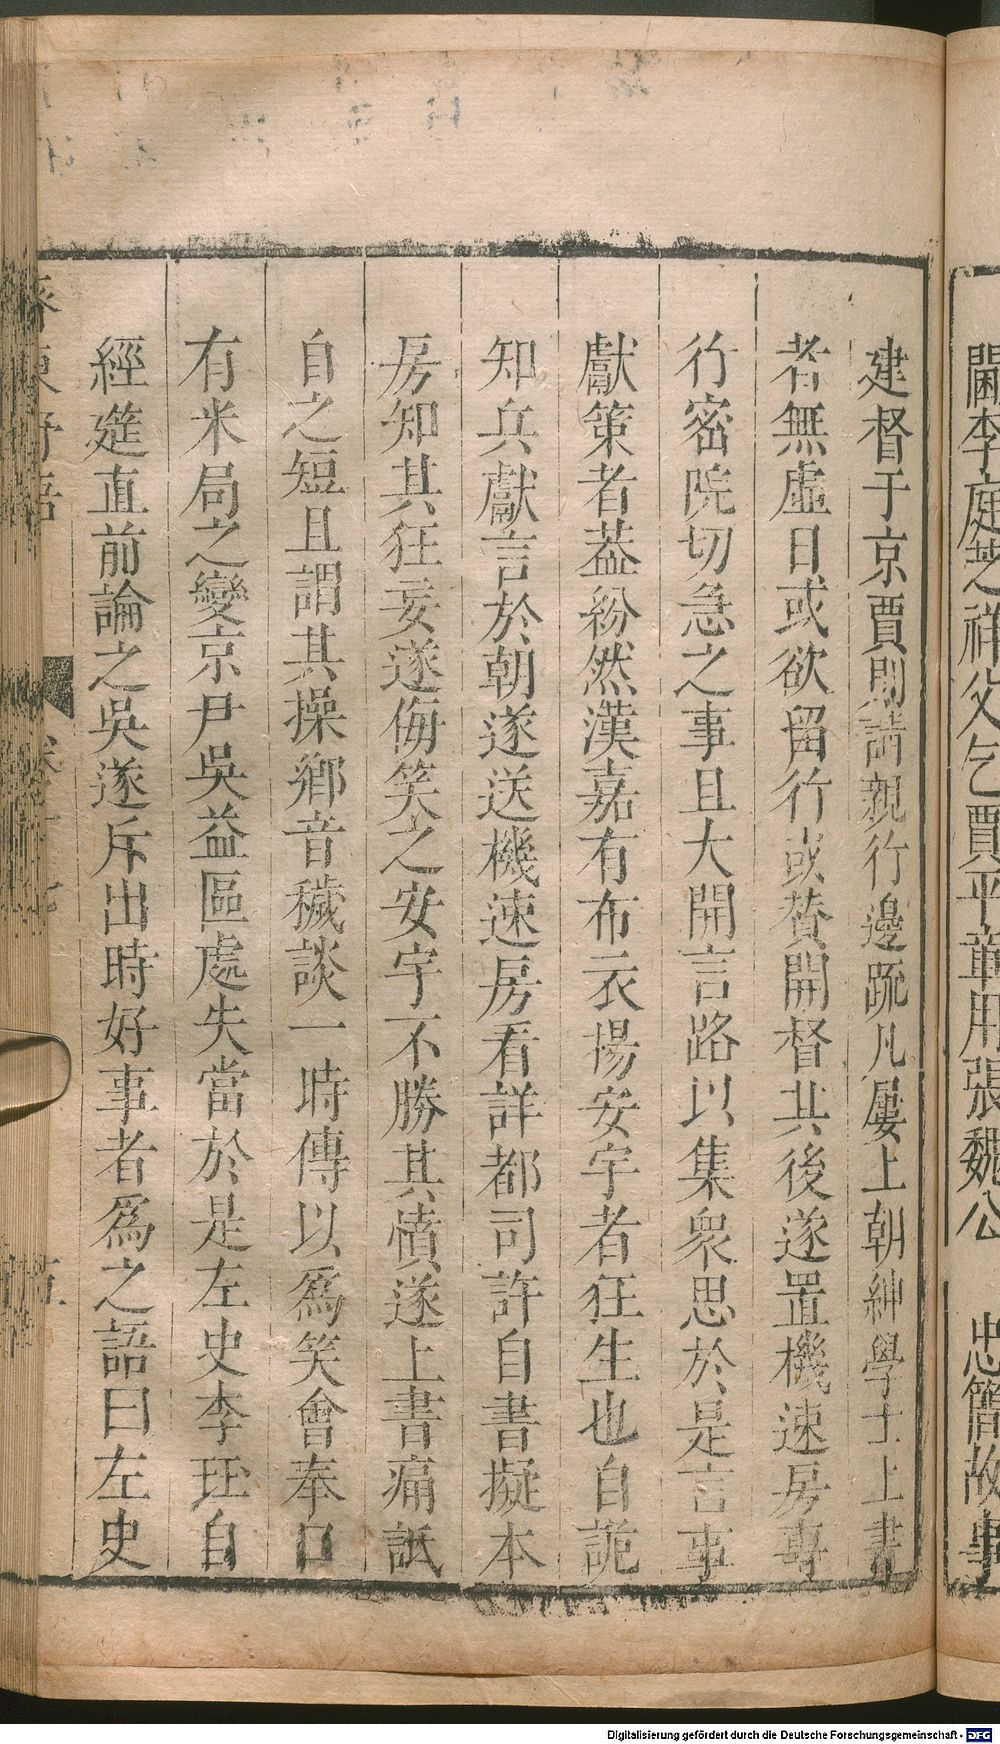 閫李庭芝祥父乞賈平章用張魏公　忠簡故事
建督于京賈則請親行邊䟽凡屢上朝紳學士上書
者無虛日或欲留行或賛開督其後遂置機速房專
行密院切急之事且大開言路以集衆思於是言事
獻策者葢紛然漢嘉有布衣揚安宇者狂生也自詭
知兵獻言於朝遂送機速房看詳都司許自書擬本
房知其狂妄遂侮笑之安宇不勝其憤遂上書痛詆
自之短且謂其操鄉音穢談一時傳以爲笑會奉口
有米局之變京尹吳益區處失當於是左史李珏自
經筵直前論之吳遂斥出時好事者爲之語曰左史
齊東野語
卷十七
Digitalisierung gefördert durch die Deutsche Forschungsgemeinschaft - DFG